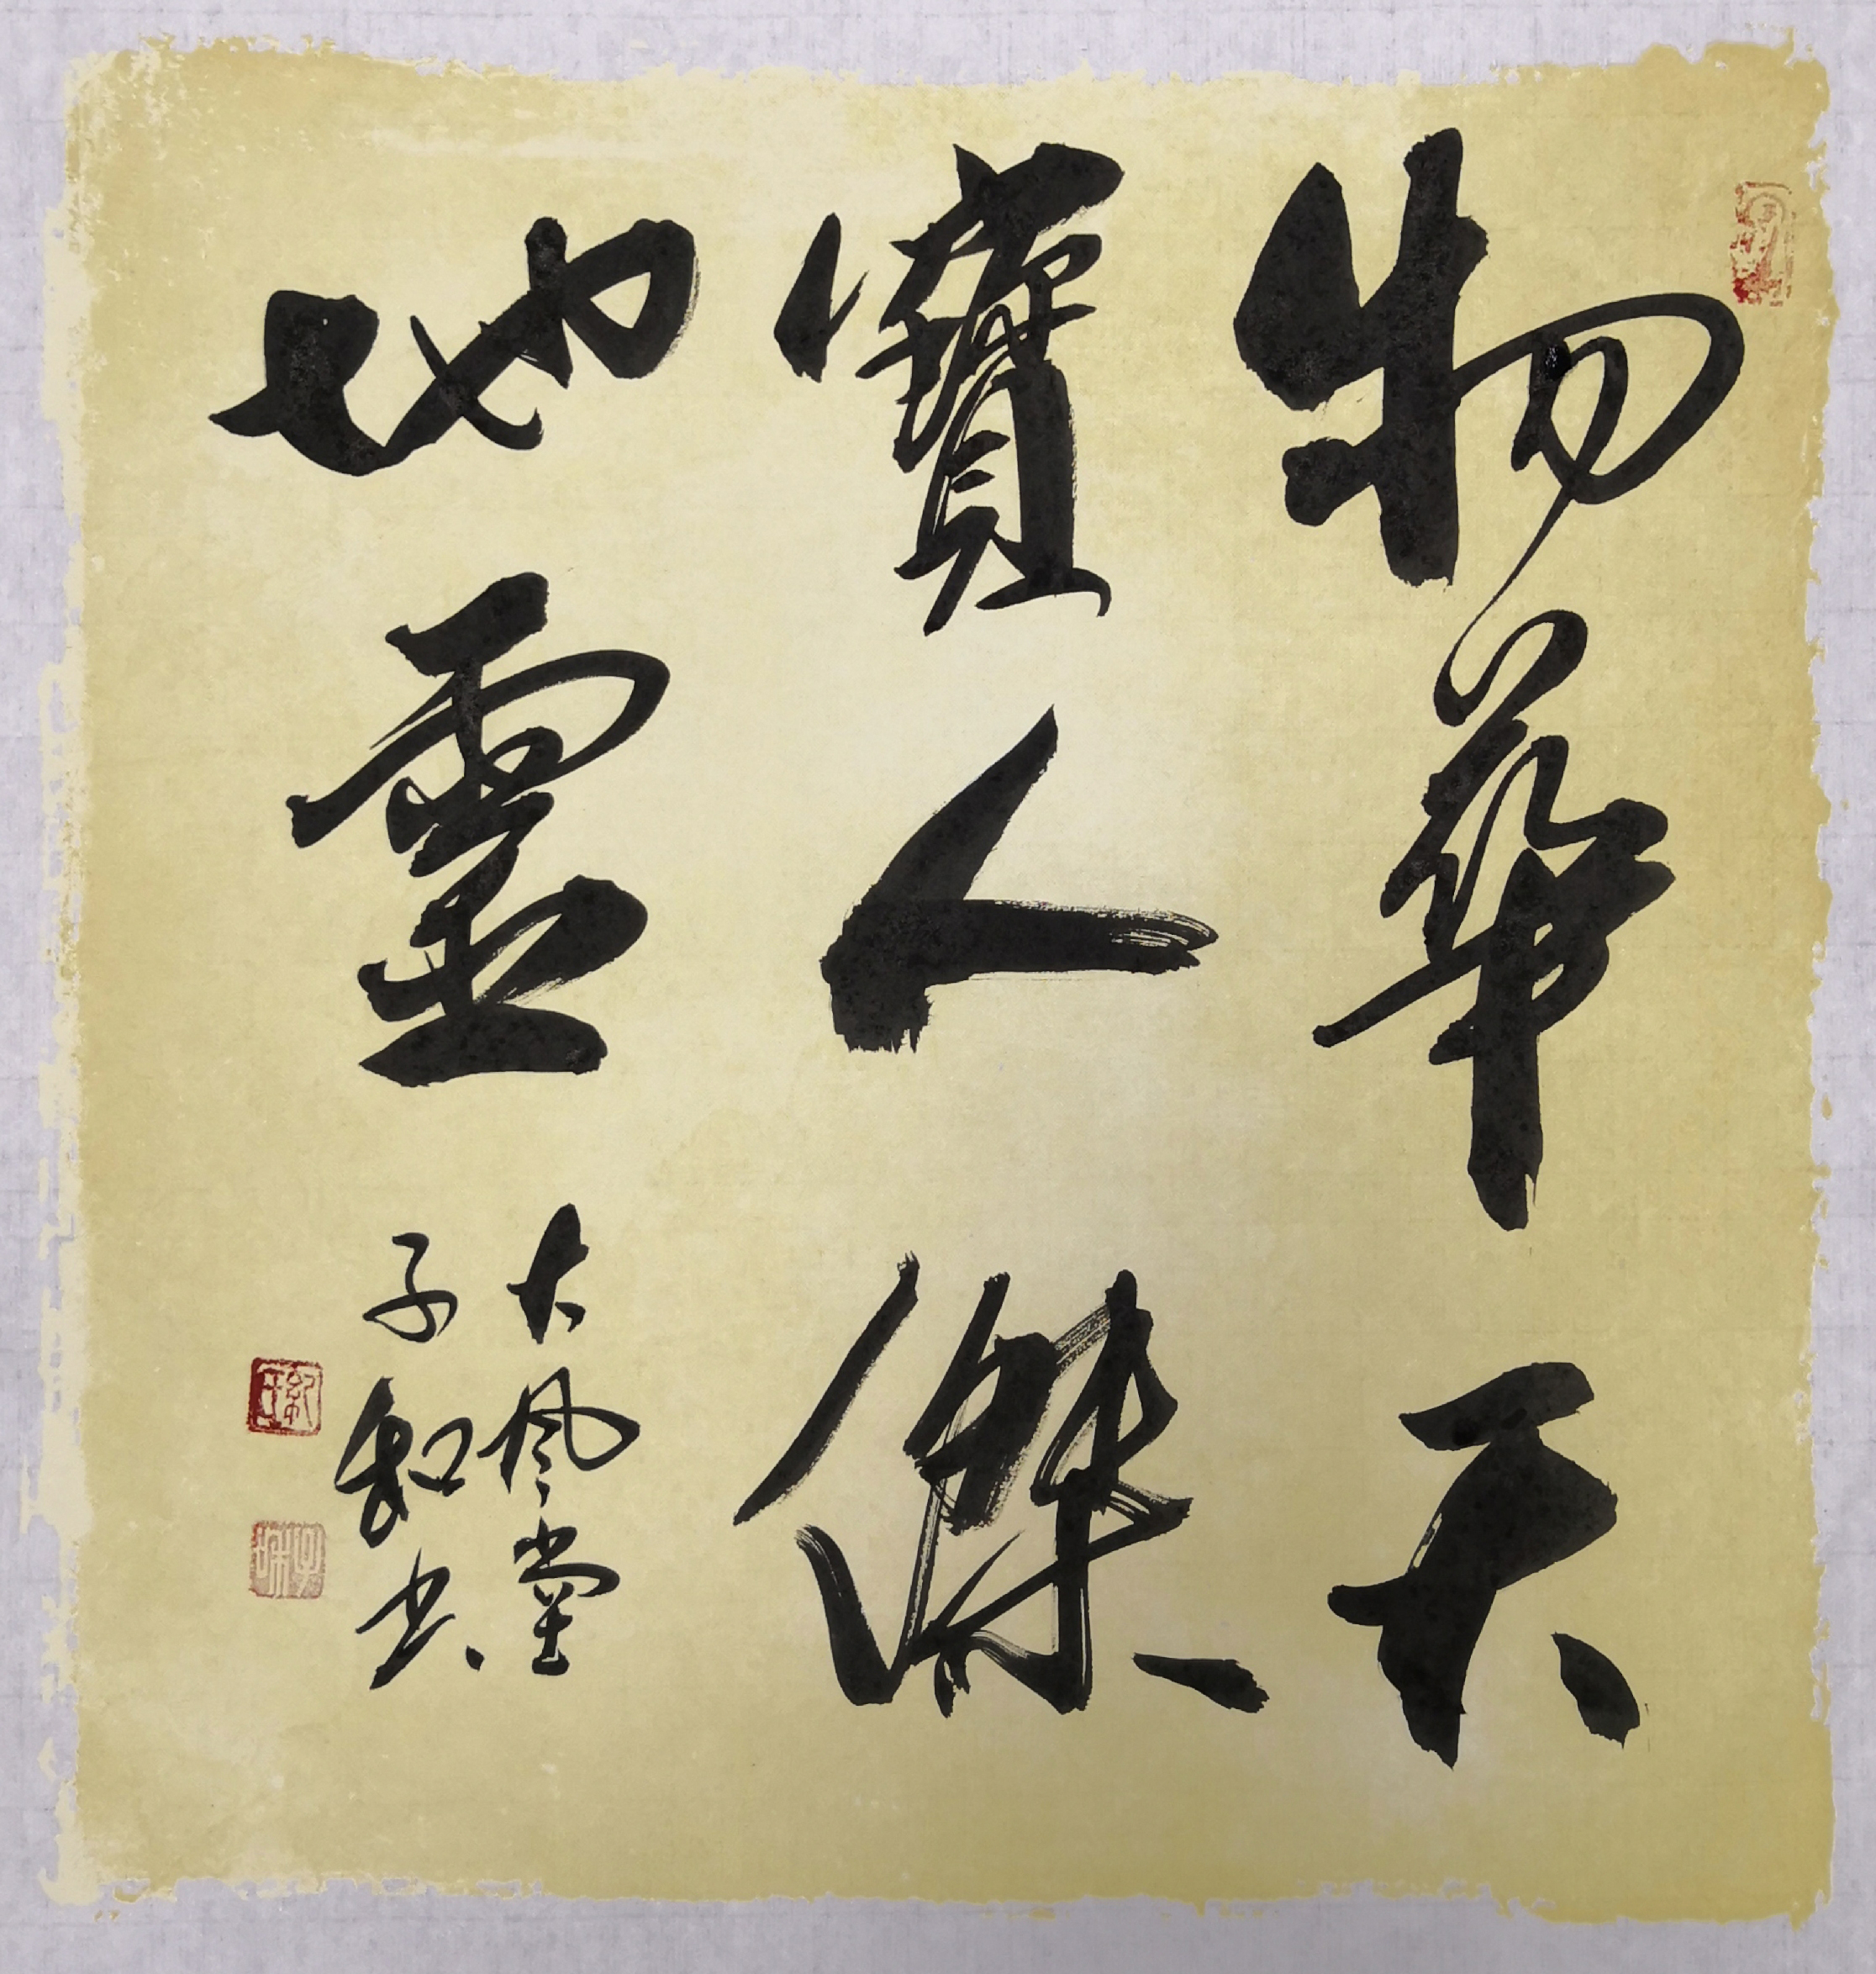 物華天
寶人傑
地靈
大风堂
子和书